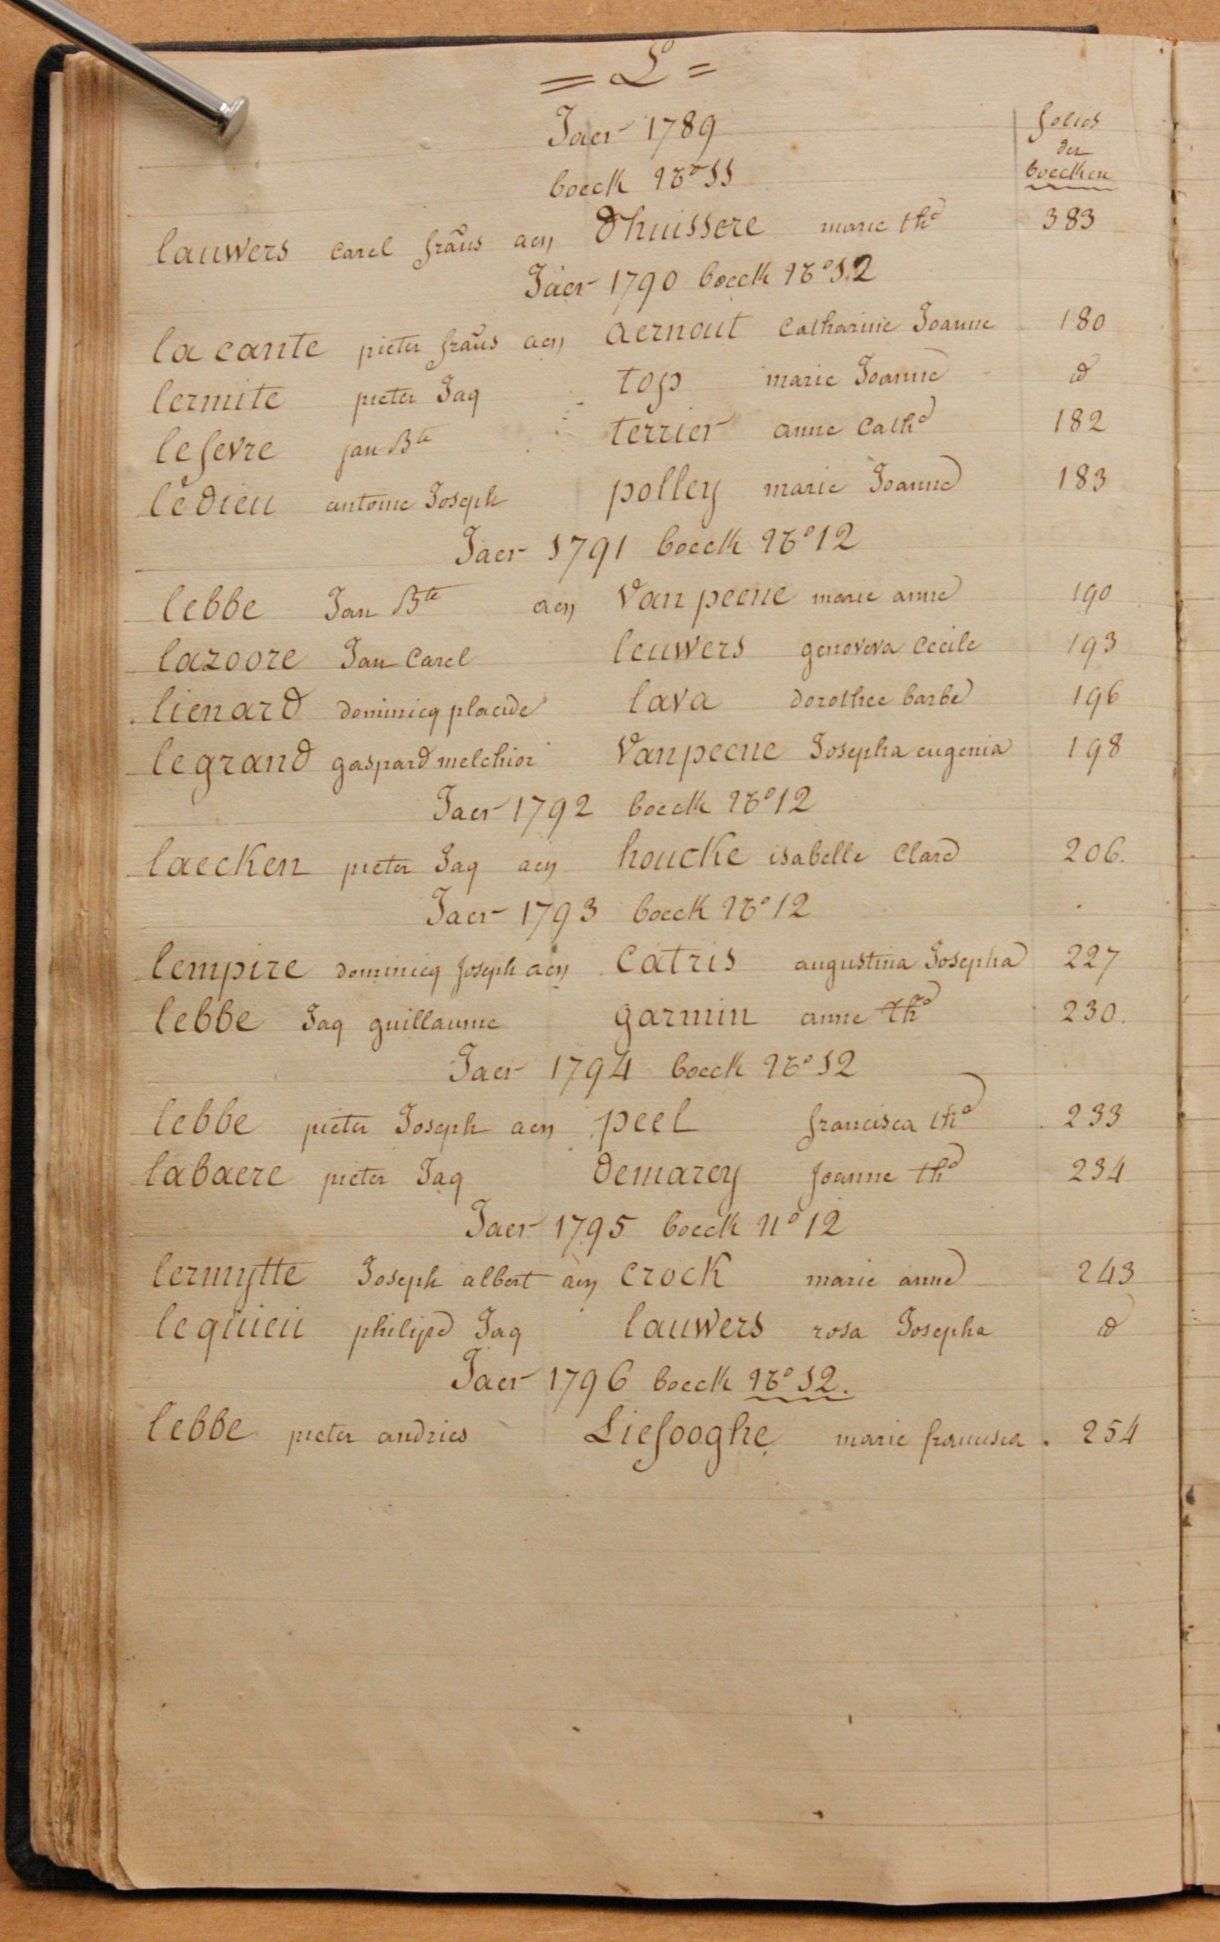 = L =
Jaer 1789
folios
der
boecken
boeck No 11
lauwers carel frans aen Dhuissere marie thd 383
Jaer 1790 boeck No 12
lacante pieter frans aen aernout Catharine Joanne 180
lermite pieter Jaq top marie Joanne id
lefevre jan Bte terrier anne Cathd 182
ledieu antoine Joseph polley marie Joanne 183
Jaer 1791 boeck No 12
lebbe Jan Bte aen Vanpeene marie anne 190
lazoore Jan Carel leuwers genoveva Cecile 193
lienard dominicq placide lava dorothee barbe 196
legrand gaspard melchior Vanpeene Josepha eugenia 198
Jaer 1792 boeck No 12
laecken pieter Jaq aen houcke isabelle Clare 206.
Jaer 1793 boeck No 12
lempire dominicq Joseph aen Catris augustina Josepha 227
lebbe Jaq guillaume garmin anne thd 230.
Jaer 1794 boeck No 12
lebbe pieter Joseph aen peel francisca thd 233
labaere pieter Jaq Demarey Joanne thd 234
Jaer 1795 boeck no 12
lermytte Joseph albert aen Crock marie anne 243
lequieu philipe Jaq lauwers rosa Josepha id
Jaer 1796 boeck No 12.
lebbe pieter andries Liefooghe marie francisca . 254